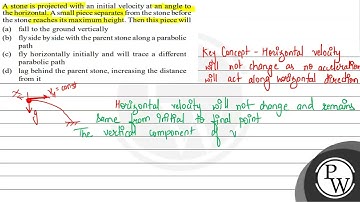 A stone is projected with an initial velocity at an angle to
the horizontal. A small piece separates from the stone before
the stone reaches its maximum height. Then this piece will
(a) fall to the ground vertically
(b) fly side by side with the parent stone along a parabolic
path
(c) fly horizontally initially and will trace a different
parabolic path
(d) lag behind the parent stone, increasing the distance
from it
Key Concept - Horizontal velocity
will not change as no acceleration
will act along horizontal direction
g
Horizontal velocity will not change and remains
same from initial to final point
The vertical component of v
PW